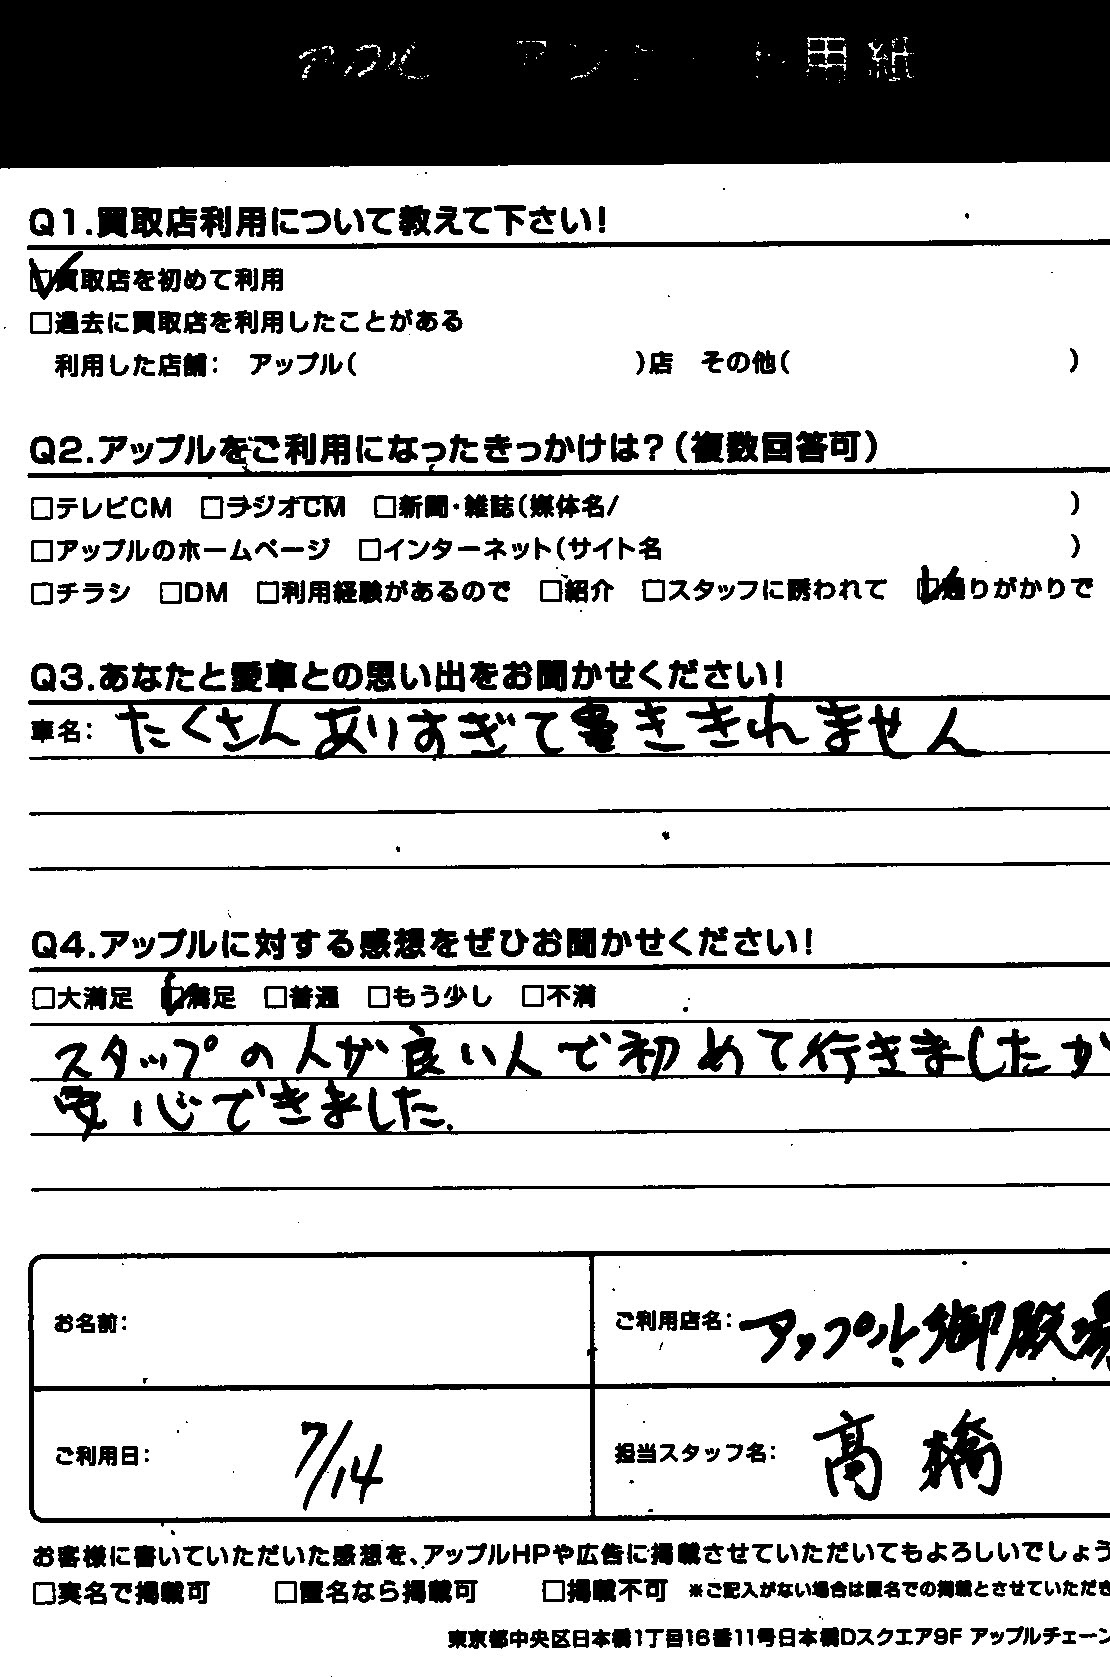 アップル アンケート用紙
Q1.買取店利用について教えて下さい!
買取店を初めて利用
□過去に買取店を利用したことがある
利用した店舗: アップル( )店 その他( )
Q2.アップルをご利用になったきっかけは?(複数回答可)
□テレビCM □ラジオCM □新聞・雑誌(媒体名/ )
□アップルのホームページ □インターネット(サイト名 )
□チラシ □DM □利用経験があるので □紹介 □スタッフに誘われて 通りがかりで
Q3.あなたと愛車との思い出をお聞かせください!
車名: たくさんありすぎて書ききれません
Q4.アップルに対する感想をぜひお聞かせください!
□大満足 満足 □普通 □もう少し □不満
スタップの人が良い人で初めて行きましたが
安心できました.
お名前:
ご利用店名: アップル 御殿場
ご利用日: 7/14
担当スタッフ名: 高橋
お客様に書いていただいた感想を、アップルHPや広告に掲載させていただいてもよろしいでしょう
□実名で掲載可 □匿名なら掲載可 □掲載不可 ※ご記入がない場合は匿名での掲載とさせていただき
東京都中央区日本橋1丁目16番11号日本橋Dスクエア9F アップルチェーン